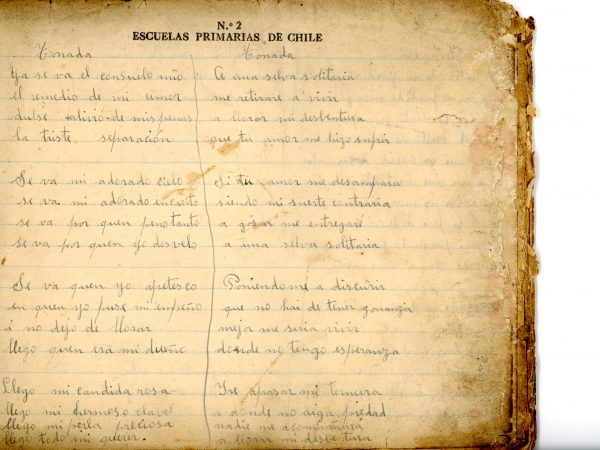 N.º 2
ESCUELAS PRIMARIAS DE CHILE
Tonada
Ya se va el consuelo mio
el remedio de mi amor
dulse alivio de mis penas
la triste separación
Se va mi adorado cielo
se va mi adorado encanto
se va por quen peno tanto
se va por quen yo desvelo
Se va quen yo apetesco
en quen yo puse mi empeño
i no dejo de llorar
llego quien era mi dueño
Llego mi candida rosa
llego mi hermoso clavel
llego mi perla preciosa
llego todo mi querer.
Tonada
A una selva solitaria
me retirare a vivir
a llorar mi desbentura
que tu amor me hizo sufrir
Si tu amor me desampara
siendo mi suerte contraria
a gosar me entregaré
a una selva solitaria
Poniendome a discurir
que no hai de tener gonansia
mejor me seria vivir
donde no tengo esperanza
Ire apasar mi ternura
a donde no aiga piedad
nadie me acompañara
a llorar mi desbentura